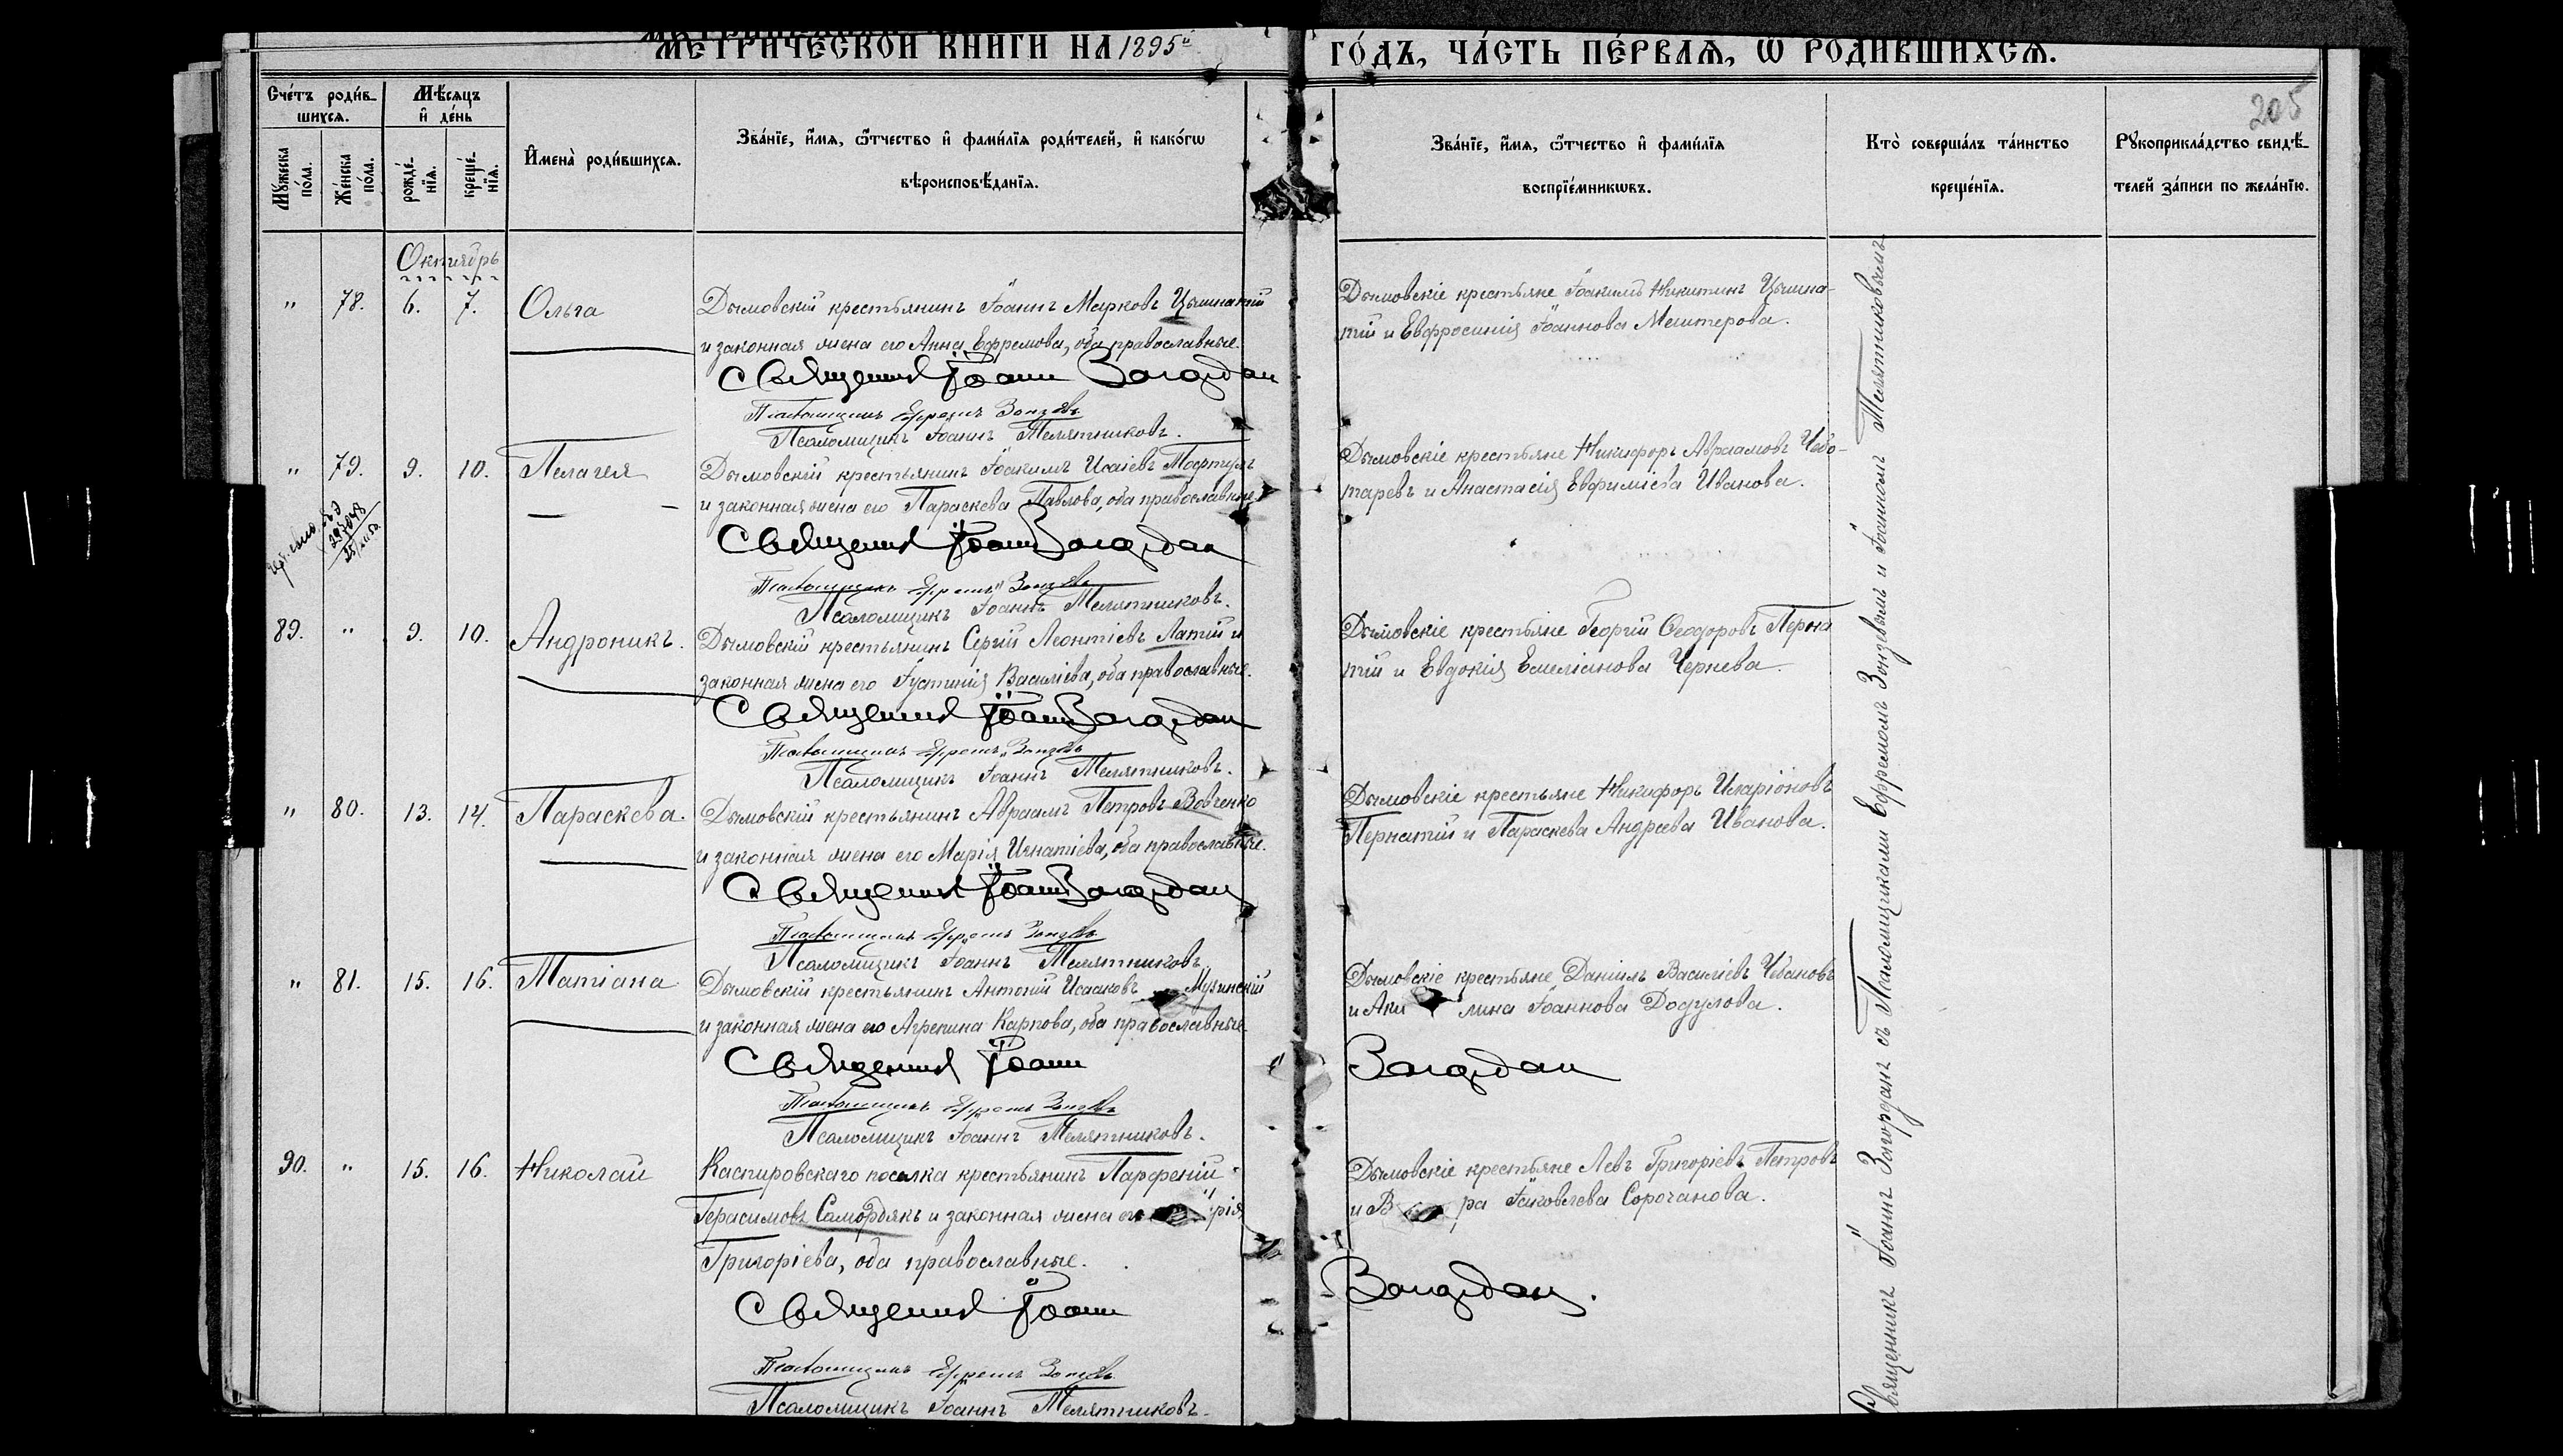 МЕТРИЧЕСКОЙ КНИГИ НА 1895й ГОДЪ, ЧАСТЬ ПЕРВАЯ, Ѡ РОДИВШИХСЯ.
205
Счетъ родившихся.
Мꙋжеска пола.
Женска пола.
Мѣсяцъ и день
рожденія.
крещенія.
Имена родившихся.
Званіе, имя, ѿчество и фамилія родителей, и какогѡ
вѣроисповѣданія.
Званіе, имя, ѿчество и фамилія
воспріемникѡвъ.
Кто совершалъ таинство
крещенія.
Рꙋкоприкладство свидѣ-
телей записи по желанію.
Октябрь
" 78. 6. 7. Ольга
Дымовскій крестьянинъ Іоаннъ Марковъ
и законная жена его Анна Ефремова, оба православные.
Священник Іоанн Загордан
Псаломщикъ Ефремъ Зондевъ
Псаломщикъ Іоаннъ Телятниковъ.
Дымовскіе крестьяне Іоакимъ Никитинъ
и Евфросинія Іоаннова Мештерова.
" 79. 9. 10. Пелагея
Дымовскій крестьянинъ Іоакимъ Исаіевъ
и законная жена его Параскева Павлова, оба православные
Священник Іоанн Загордан
Псаломщикъ Ефремъ Зондевъ
Псаломщикъ Іоаннъ Телятниковъ.
Дымовскіе крестьяне Никифоръ Авраамовъ Чебо-
таревъ и Анастасія Евфиміева Иванова.
89. " 9. 10. Андроникъ.
Дымовскій крестьянинъ Сергій Леонтіевъ Латій и
законная жена его Іустинія Василіева, оба православные.
Священник Іоанн Загордан
Псаломщикъ Ефремъ Зондевъ
Псаломщикъ Іоаннъ Телятниковъ.
Дымовскіе крестьяне Георгій Ѳеодоровъ Перна
тій и Евдокія Емеліанова Чернева.
" 80. 13. 14. Параскева.
Дымовскій крестьянинъ Авраамъ Петровъ Вовченко
и законная жена его Марія Игнатіева, оба православные.
Священник Іоанн Загордан
Псаломщикъ Ефремъ Зондевъ
Псаломщикъ Іоаннъ Телятниковъ
Дымовскіе крестьяне Никифоръ Иларіоновъ
Пернатій и Параскева Андреева Иванова.
" 81. 15. 16. Татіана
Дымовскій крестьянинъ Антоній Исааковъ Мугинскій
и законная жена его Агрепина Карпова, оба православные
Священник Іоанн Загордан
Псаломщикъ Ефремъ Зондевъ
Псаломщикъ Іоаннъ Телятниковъ.
Дымовскіе крестьяне Даніилъ Василіевъ Чебановъ
и Аки лина Іоаннова Додулова.
90. " 15. 16. Николай
Каспировскаго поселка крестьянинъ Парфеній
Герасимовъ Самордякъ и законная жена его рія
Григоріева, оба православные.
Священник Іоанн Загордан.
Псаломщикъ Ефремъ Зондевъ
Псаломщикъ Іоаннъ Телятниковъ.
Дымовскіе крестьяне Левъ Григоріевъ Петровъ
и В ра Іаковлева Сорочанова.
Священникъ Іоаннъ Загорданъ съ Псаломщиками Ефремомъ Зондевымъ и Іоанномъ Телятниковымъ